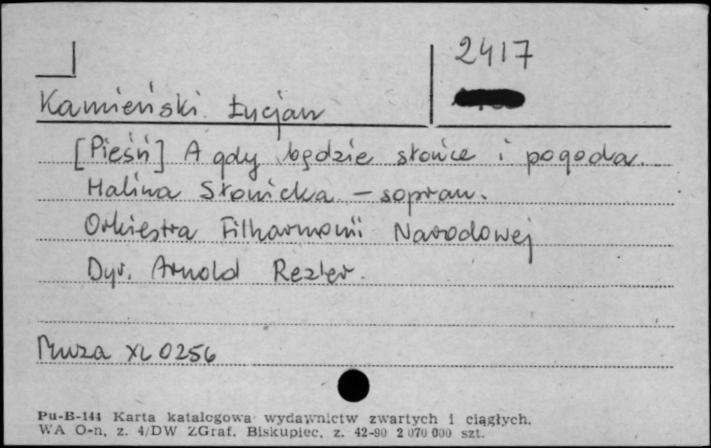 2417
Kamieński Łucjan
[Pieśń] A gdy będzie słońce i pogoda.
Halina Słonicka – sopran.
Orkiestra Filharmonii Narodowej
Dyr. Arnold Rezler.
Muza XL 0256
Pu-B-144 Karta katalogowa wydawnictw zwartych i ciągłych.
WA O-n, z. 4/DW ZGraf. Biskupiec, z. 42-80 2 070 000 szt.